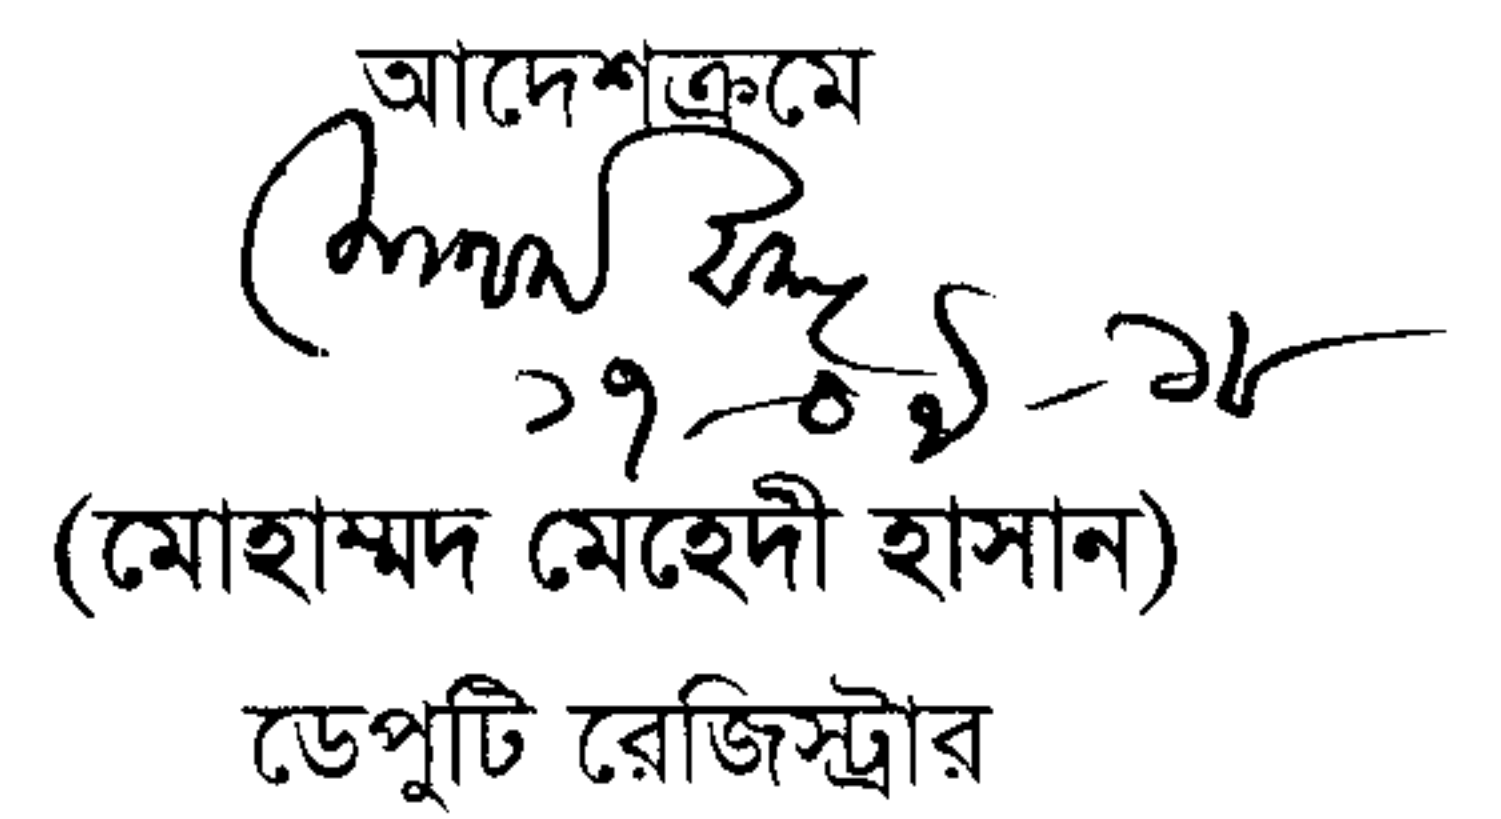 আদেশক্রমে
১৭-০৯-১৮
(মোহাম্মদ মেহেদী হাসান)
ডেপুটি রেজিস্ট্রার